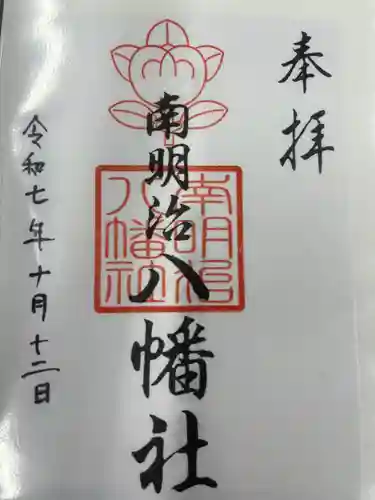 奉拝
南明治八幡社
南明治八幡社
令和七年十月十二日